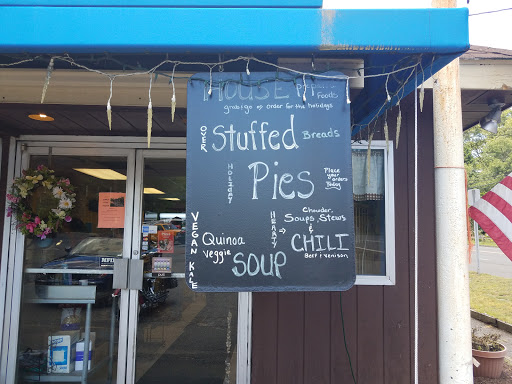 HOUSE
Foods
grab & go or order for the holidays
OVER
Stuffed Breads
HOLIDAY
Pies
Place your orders Today
VEGAN KALE
Quinoa
Veggie
SOUP
HEARTY
Chowder
Soups, Stews
&
CHILI
Beef & venison